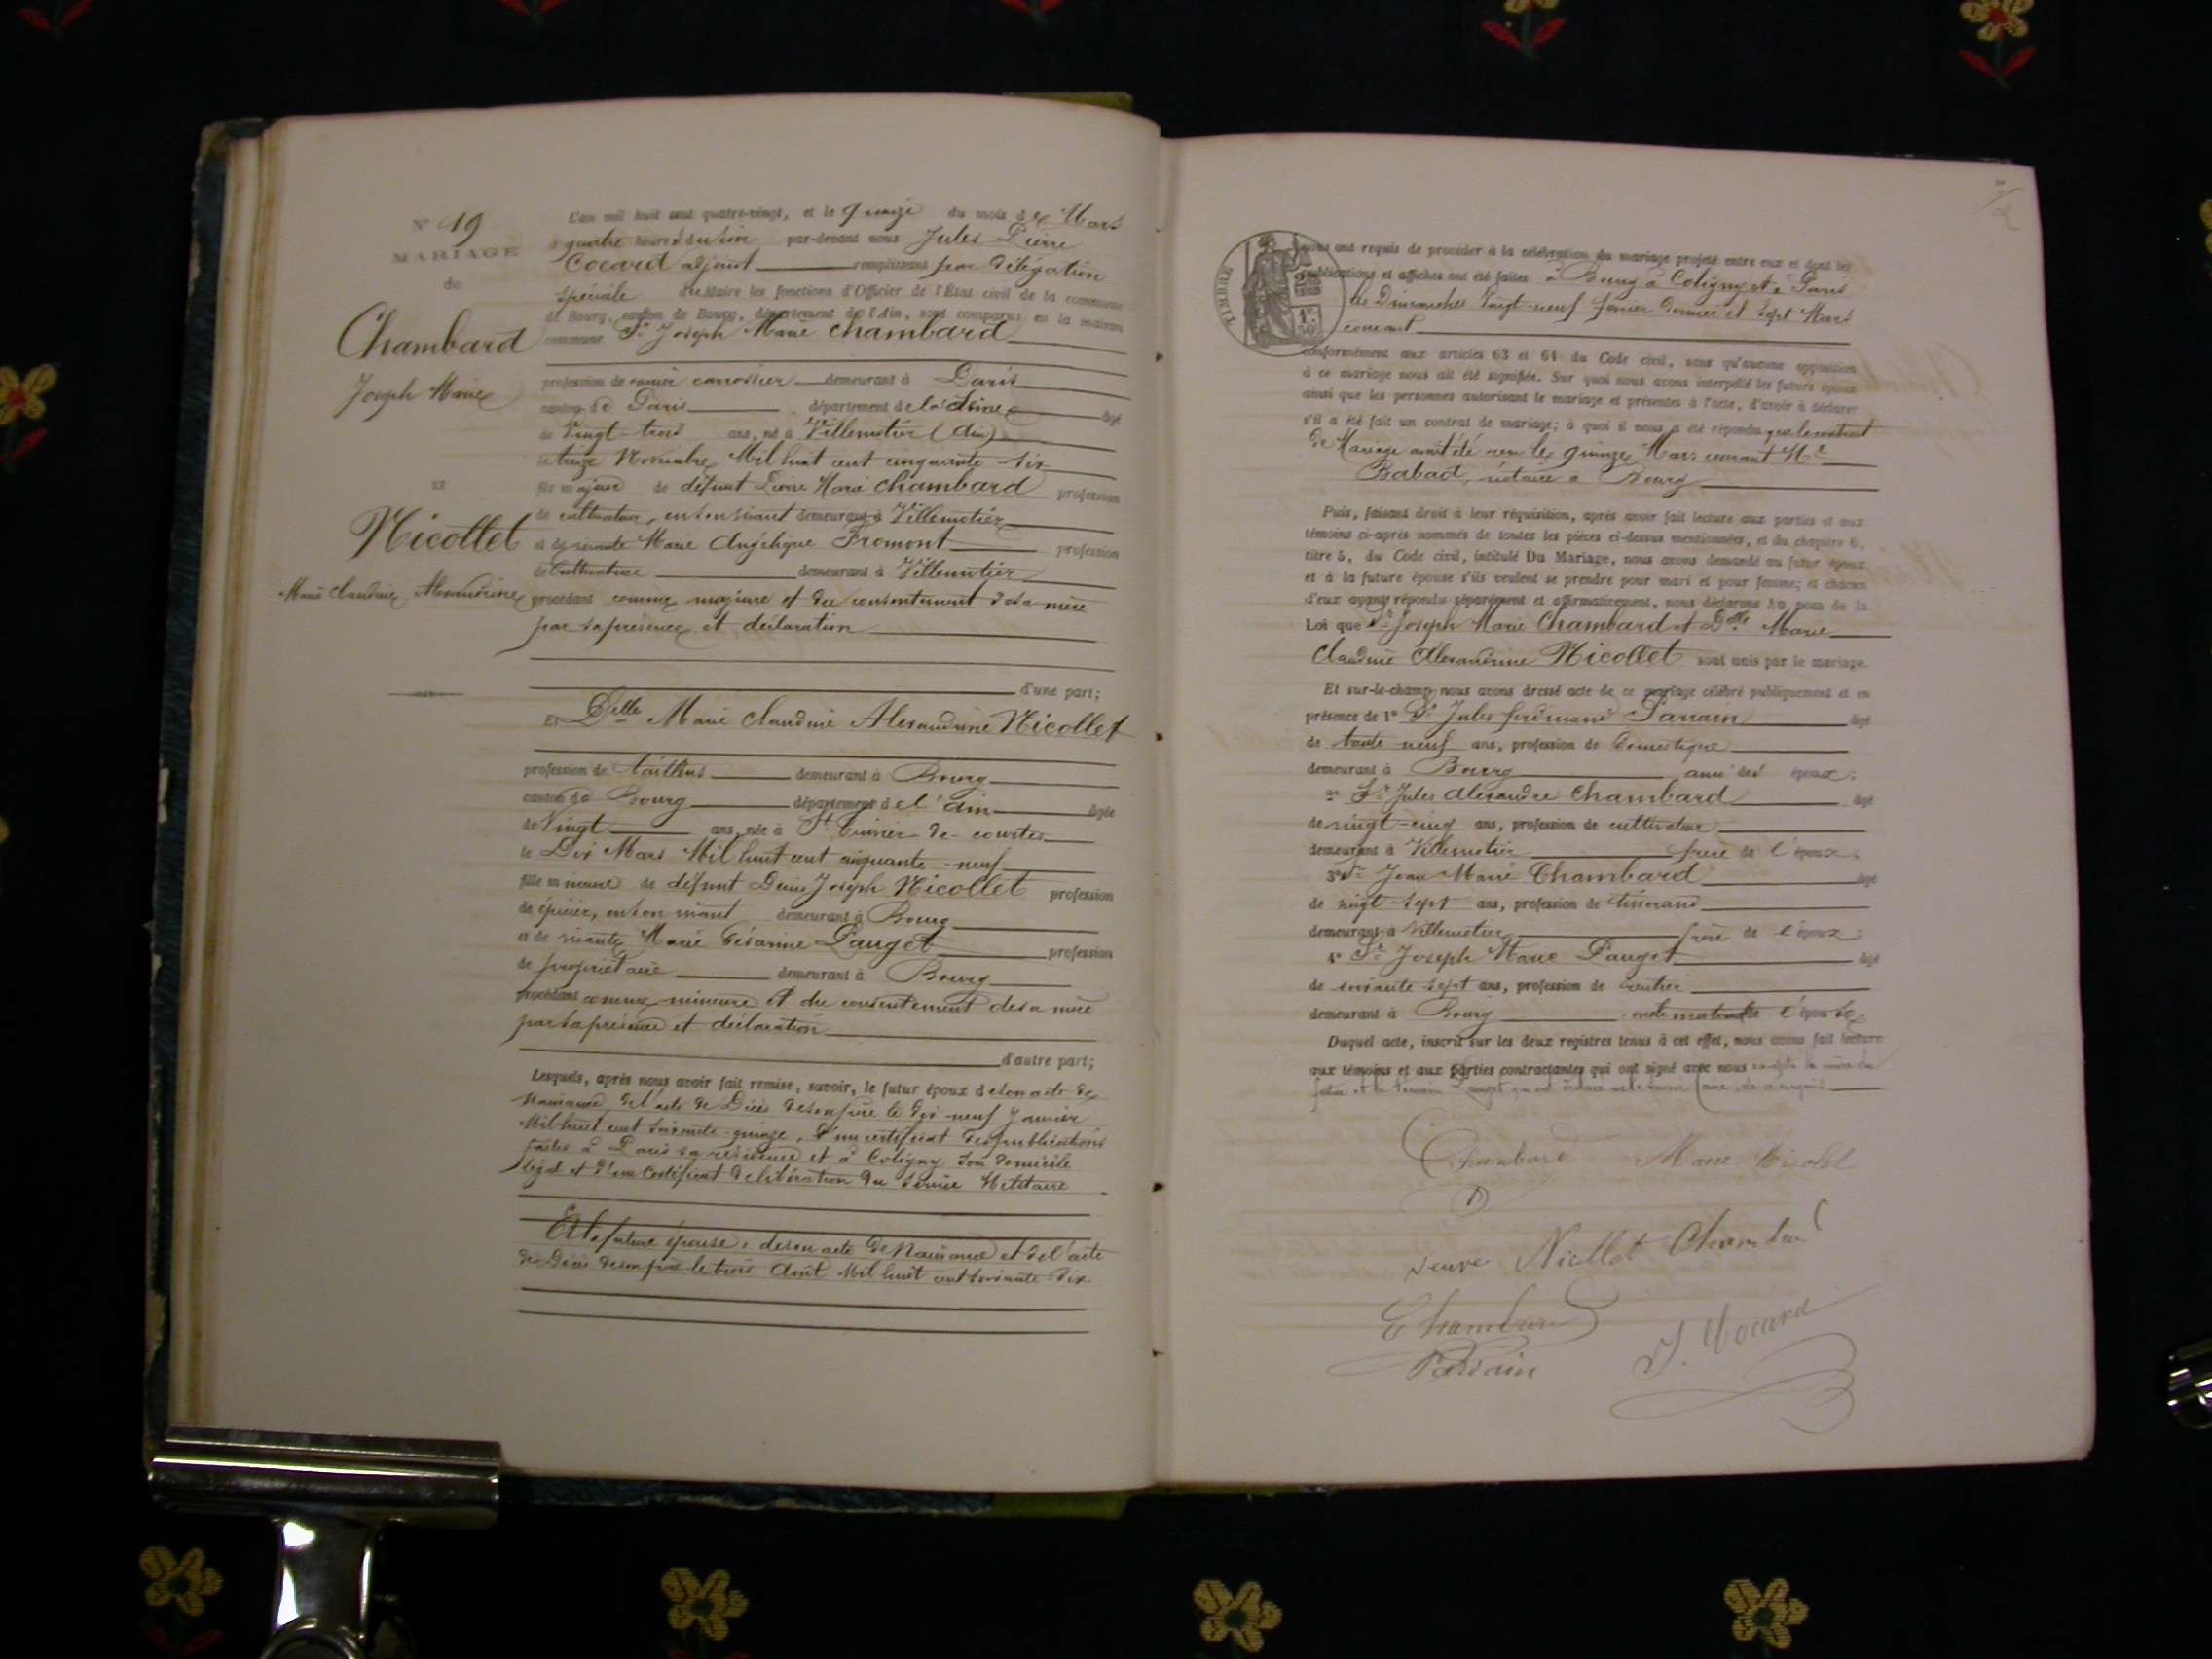 N° 19
MARIAGE
de
Chambard
Joseph Marie
et
Nicollet
Marie Claudine Alexandrine
L'an mil huit cent quatre-vingt, et le quinze du mois de Mars
à quatre heures du soir par-devant nous Jules Pierre
Cocard adjoint remplissant par délégation
spéciale du Maire les fonctions d'Officier de l'État civil de la commune
de Bourg, canton de Bourg, département de l'Ain, sont comparus en la maison
commune Sr Joseph Marie Chambard
profession de carrossier demeurant à Paris
canton de Paris département de la Seine âgé
de Vingt-trois ans, né à Villemotier (Ain)
le treize Novembre Mil huit cent cinquante six
fils majeur de défunt Pierre Marie Chambard profession
de cultivateur, en son vivant demeurant à Villemotier
et de vivante Marie Angélique Fromont profession
de Cultivatrice demeurant à Villemotier
procédant comme majeur et du consentement de sa mère
par sa présence et déclaration
d'une part;
Et Delle Marie Claudine Alexandrine Nicollet
profession de demeurant à Bourg
canton de Bourg département de l'Ain âgée
de Vingt ans, née à St Trivier-de-Courtes
le Dix Mars Mil huit cent cinquante-neuf
fille mineure de défunt Denis Joseph Nicollet profession
de épicier, en son vivant demeurant à Bourg
et de vivante Marie Césarine Pauget profession
de propriétaire demeurant à Bourg
procédant comme mineure et du consentement de sa mère
par sa présence et déclaration
d'autre part;
Lesquels, après nous avoir fait remise, savoir, le futur époux de son acte de
Naissance, de l'acte de Décès de son père le dix-neuf Janvier
Mil huit cent soixante-quinze, d'un certificat des publications
faites à Paris sa résidence et à Coligny son domicile
légal et d'un Certificat de libération du Service Militaire
Et la future épouse, de son acte de Naissance et de l'acte
de Décès de son père le trois Août Mil huit cent soixante dix
TIMBRE
nous ont requis de procéder à la célébration du mariage projeté entre eux et dont les
publications et affiches ont été faites à Bourg à Coligny et à Paris
les Dimanches Vingt-neuf février dernier et Sept Mars
courant
conformément aux articles 63 et 64 du Code civil, sans qu'aucune opposition
à ce mariage nous ait été signifiée. Sur quoi nous avons interpellé les futurs époux
ainsi que les personnes autorisant le mariage et présentes à l'acte, d'avoir à déclarer
s'il a été fait un contrat de mariage; à quoi il nous a été répondu que le contrat
de Mariage avait été reçu le quinze Mars courant Me
Babad, notaire à Bourg
Puis, faisant droit à leur réquisition, après avoir fait lecture aux parties et aux
témoins ci-après nommés de toutes les pièces ci-dessus mentionnées, et du chapitre 6,
titre 5, du Code civil, intitulé Du Mariage, nous avons demandé au futur époux
et à la future épouse s'ils veulent se prendre pour mari et pour femme; et chacun
d'eux ayant répondu séparément et affirmativement, nous déclarons au nom de la
Loi que Sr Joseph Marie Chambard et Delle Marie
Claudine Alexandrine Nicollet sont unis par le mariage.
Et sur-le-champ, nous avons dressé acte de ce mariage célébré publiquement et en
présence de 1° Sr Jules ferdinand Parrain âgé
de trente neuf ans, profession de Domestique
demeurant à Bourg ami des époux;
2° Sr Jules Alexandre Chambard âgé
de vingt-cinq ans, profession de cultivateur
demeurant à Villemotier frère de l'époux;
3° Sr Jean Marie Chambard âgé
de vingt-sept ans, profession de tisserand
demeurant à Villemotier frère de l'époux;
4° Sr Joseph Marie Pauget âgé
de soixante sept ans, profession de rentier
demeurant à Bourg oncle maternel de l'épouse.
Duquel acte, inscrit sur les deux registres tenus à cet effet, nous avons fait lecture
aux témoins et aux parties contractantes qui ont signé avec nous excepté la mère du
futur et le témoin Pauget qui ont déclaré ne le savoir faire, de ce requis
Chambard Marie Nicolet
veuve Nicllet Chambard
Chambard
Parrain J. Cocard